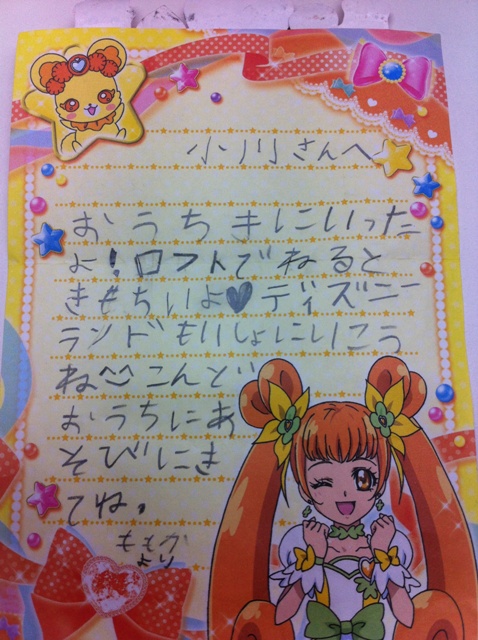 小川さんへ
おうちきにいった
よ!ロフトでねると
きもちいよ♥ディズニー
ランドもいしょにいこう
ね こんど
おうちにあ
そびにき
てね。
ももか
より